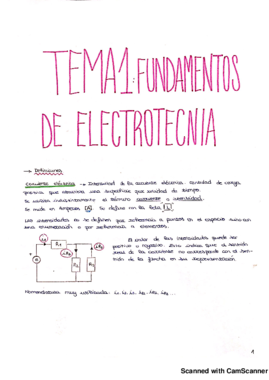 TEMA 1: FUNDAMENTOS
DE ELECTROTECNIA
→ Definiciones
Corriente eléctrica → Intensidad de la corriente eléctrica. Cantidad de carga
que atraviesa una superficie por unidad de tiempo
Se utilizan indistintamente el término corriente o intensidad.
Se mide en Amperios [A]. Se define con la letra [i].
Las intensidades no se definen por referencia a puntos en el espacio sino con
una enumeración o por referencia a elementos.
El valor de las intensidades puede ser
positivo o negativo. Esto indica que el sentido
real de la corriente no corresponde con el sen-
tido de la flecha en su representación.
R1
Nomenclatura muy utilizada:
1
Scanned with CamScanner